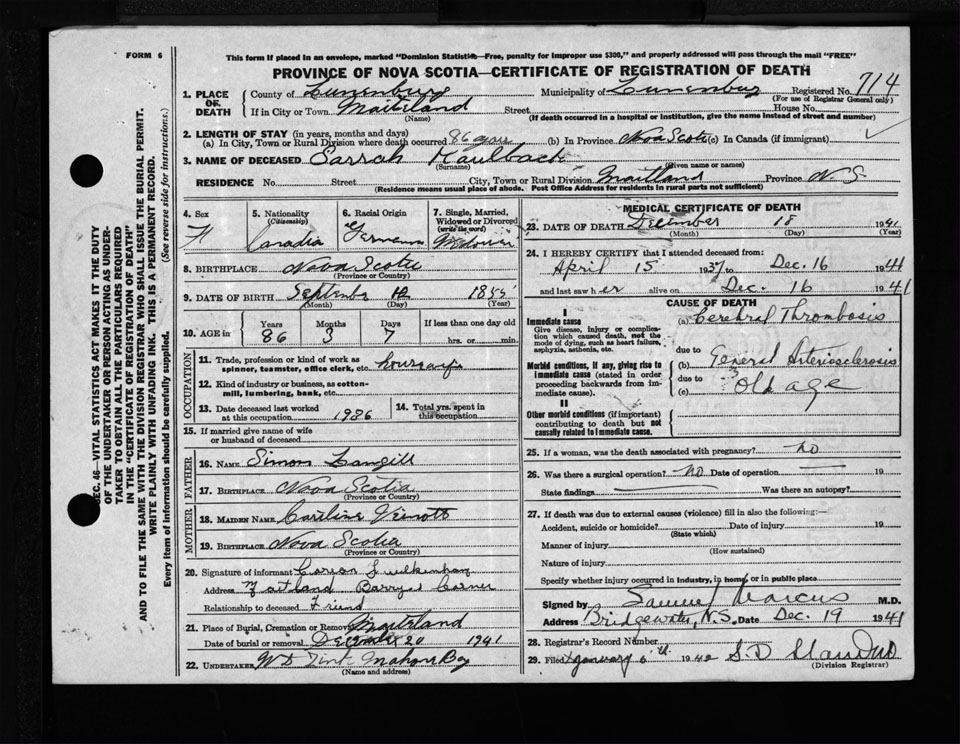 FORM 6
This form if placed in an envelope, marked "Dominion Statistics—Free, penalty for improper use $300," and properly addressed will pass through the mail "FREE"
PROVINCE OF NOVA SCOTIA—CERTIFICATE OF REGISTRATION OF DEATH
1. PLACE OF DEATH County of Lunenburg Municipality of Lunenburg Registered No. 714
(For use of Registrar General only)
If in City or Town Maitland Street House No.
(Name) (If death occurred in a hospital or institution, give the name instead of street and number)
2. LENGTH OF STAY (in years, months and days)
(a) In City, Town or Rural Division where death occurred 86 yrs (b) In Province Nova Scotia (c) In Canada (if immigrant)
3. NAME OF DECEASED Sarrah Kaulback
(Surname) (Given name or names)
RESIDENCE No. Street City, Town or Rural Division Maitland Province N S
(Residence means usual place of abode. Post Office Address for residents in rural parts not sufficient)
4. Sex F
5. Nationality (Citizenship) Canadia
6. Racial Origin German
7. Single, Married, Widowed or Divorced (write the word) Widower
8. BIRTHPLACE Nova Scotia
(Province or Country)
9. DATE OF BIRTH September 1855
(Month) (Day) (Year)
10. AGE in Years Months Days If less than one day old
86 3 7 hrs. or min.
OCCUPATION
11. Trade, profession or kind of work as spinner, teamster, office clerk, etc. housewife
12. Kind of industry or business, as cotton-mill, lumbering, bank, etc.
13. Date deceased last worked at this occupation 1936
14. Total yrs. spent in this occupation
15. If married give name of wife or husband of deceased
FATHER
16. NAME Simon Langill
17. BIRTHPLACE Nova Scotia
(Province or Country)
MOTHER
18. MAIDEN NAME Cartline
19. BIRTHPLACE Nova Scotia
(Province or Country)
20. Signature of informant
Address Maitland Barrys Corner
Relationship to deceased Friend
21. Place of Burial, Cremation or Removal Maitland
Date of burial or removal December 20 1941
22. UNDERTAKER W D Mahone Bay
(Name and address)
MEDICAL CERTIFICATE OF DEATH
23. DATE OF DEATH December 18 1941
(Month) (Day) (Year)
24. I HEREBY CERTIFY that I attended deceased from:
April 15 1937 to Dec. 16 1941
and last saw her alive on Dec. 16 1941
CAUSE OF DEATH
I
Immediate cause
Give disease, injury or complication which caused death, not the mode of dying, such as heart failure, asphyxia, asthenia, etc.
(a) Cerebral Thrombosis
due to
Morbid conditions, if any, giving rise to immediate cause (stated in order proceeding backwards from immediate cause).
(b) General Arteriosclerosis
due to
(c) Old age
II
Other morbid conditions (if important) contributing to death but not causally related to immediate cause.
25. If a woman, was the death associated with pregnancy? no
26. Was there a surgical operation? no Date of operation 19
State findings Was there an autopsy?
27. If death was due to external causes (violence) fill in also the following:—
Accident, suicide or homicide? Date of injury 19
(State which)
Manner of injury
(How sustained)
Nature of injury
Specify whether injury occurred in industry, in home or in public place
Signed by Samuel Marcus M.D.
Address Bridgewater, N.S. Date Dec. 19 1941
28. Registrar's Record Number
29. Filed January 6th 1942 S. D.
(Division Registrar)
SEC. 46—VITAL STATISTICS ACT MAKES IT THE DUTY OF THE UNDERTAKER OR PERSON ACTING AS UNDERTAKER TO OBTAIN ALL THE PARTICULARS REQUIRED IN THE "CERTIFICATE OF REGISTRATION OF DEATH" AND TO FILE THE SAME WITH THE DIVISION REGISTRAR WHO SHALL ISSUE THE BURIAL PERMIT.
WRITE PLAINLY WITH UNFADING INK. THIS IS A PERMANENT RECORD.
Every item of information should be carefully supplied. (See reverse side for instructions.)